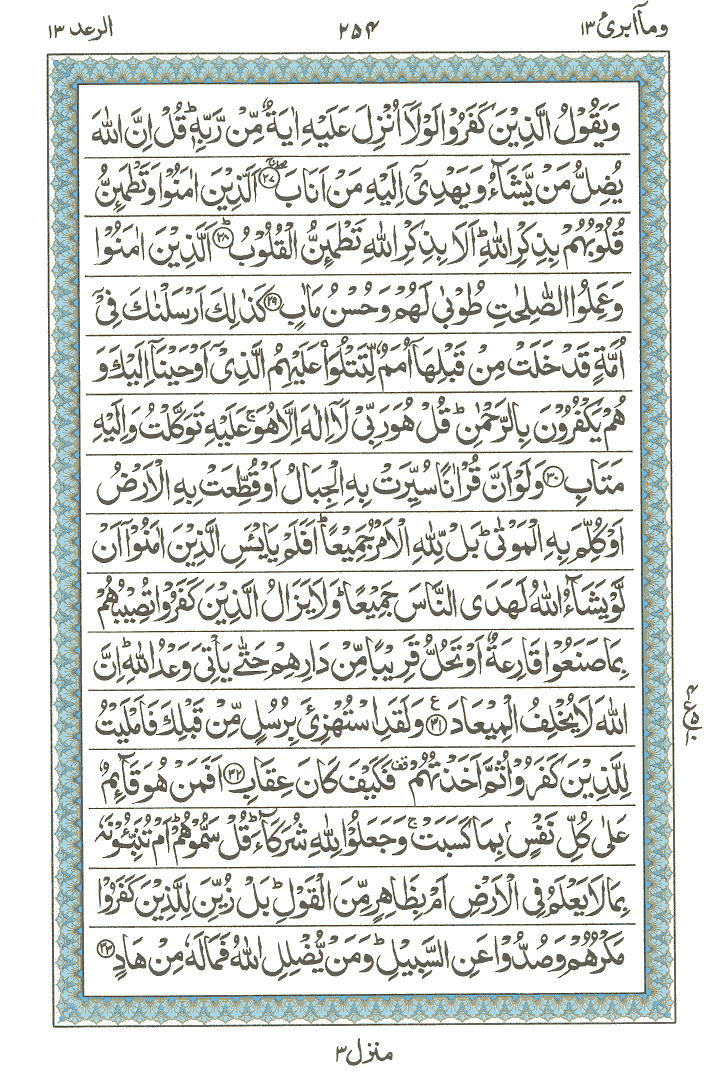 وماۤ ابرئ ١٣
٢٥٤
الرعد ١٣
وَيَقُوْلُ الَّذِيْنَ كَفَرُوْا لَوْلَاۤ اُنْزِلَ عَلَيْهِ اٰيَةٌ مِّنْ رَّبِّهٖ ؕ قُلْ اِنَّ اللّٰهَ
يُضِلُّ مَنْ يَّشَآءُ وَيَهْدِيْۤ اِلَيْهِ مَنْ اَنَابَ ۖۚ ﴿٢٧﴾ اَلَّذِيْنَ اٰمَنُوْا وَتَطْمَئِنُّ
قُلُوْبُهُمْ بِذِكْرِ اللّٰهِ ؕ اَلَا بِذِكْرِ اللّٰهِ تَطْمَئِنُّ الْقُلُوْبُ ؕ ﴿٢٨﴾ اَلَّذِيْنَ اٰمَنُوْا
وَعَمِلُوا الصّٰلِحٰتِ طُوْبٰى لَهُمْ وَحُسْنُ مَاٰبٍ ﴿٢٩﴾ كَذٰلِكَ اَرْسَلْنٰكَ فِيْۤ
اُمَّةٍ قَدْ خَلَتْ مِنْ قَبْلِهَاۤ اُمَمٌ لِّتَتْلُوَا۟ عَلَيْهِمُ الَّذِيْۤ اَوْحَيْنَاۤ اِلَيْكَ وَ
هُمْ يَكْفُرُوْنَ بِالرَّحْمٰنِ ؕ قُلْ هُوَ رَبِّيْ لَاۤ اِلٰهَ اِلَّا هُوَ ۚ عَلَيْهِ تَوَكَّلْتُ وَاِلَيْهِ
مَتَابِ ﴿٣٠﴾ وَلَوْ اَنَّ قُرْاٰنًا سُيِّرَتْ بِهِ الْجِبَالُ اَوْ قُطِّعَتْ بِهِ الْاَرْضُ
اَوْ كُلِّمَ بِهِ الْمَوْتٰى ؕ بَلْ لِّلّٰهِ الْاَمْرُ جَمِيْعًا ؕ اَفَلَمْ يَايْـَٔسِ الَّذِيْنَ اٰمَنُوْۤا اَنْ
لَّوْ يَشَآءُ اللّٰهُ لَهَدَى النَّاسَ جَمِيْعًا ؕ وَلَا يَزَالُ الَّذِيْنَ كَفَرُوْا تُصِيْبُهُمْ
بِمَا صَنَعُوْا قَارِعَةٌ اَوْ تَحُلُّ قَرِيْبًا مِّنْ دَارِهِمْ حَتّٰى يَاْتِيَ وَعْدُ اللّٰهِ ؕ اِنَّ
اللّٰهَ لَا يُخْلِفُ الْمِيْعَادَ ﴿٣١﴾ ع وَلَقَدِ اسْتُهْزِئَ بِرُسُلٍ مِّنْ قَبْلِكَ فَاَمْلَيْتُ
لِلَّذِيْنَ كَفَرُوْا ثُمَّ اَخَذْتُهُمْ ۫ فَكَيْفَ كَانَ عِقَابِ ﴿٣٢﴾ اَفَمَنْ هُوَ قَآئِمٌ
عَلٰى كُلِّ نَفْسٍۭ بِمَا كَسَبَتْ ۚ وَجَعَلُوْا لِلّٰهِ شُرَكَآءَ ؕ قُلْ سَمُّوْهُمْ ؕ اَمْ تُنَبِّـُٔوْنَهٗ
بِمَا لَا يَعْلَمُ فِي الْاَرْضِ اَمْ بِظَاهِرٍ مِّنَ الْقَوْلِ ؕ بَلْ زُيِّنَ لِلَّذِيْنَ كَفَرُوْا
مَكْرُهُمْ وَصُدُّوْا عَنِ السَّبِيْلِ ؕ وَمَنْ يُّضْلِلِ اللّٰهُ فَمَا لَهٗ مِنْ هَادٍ ﴿٣٣﴾
منزل ٣